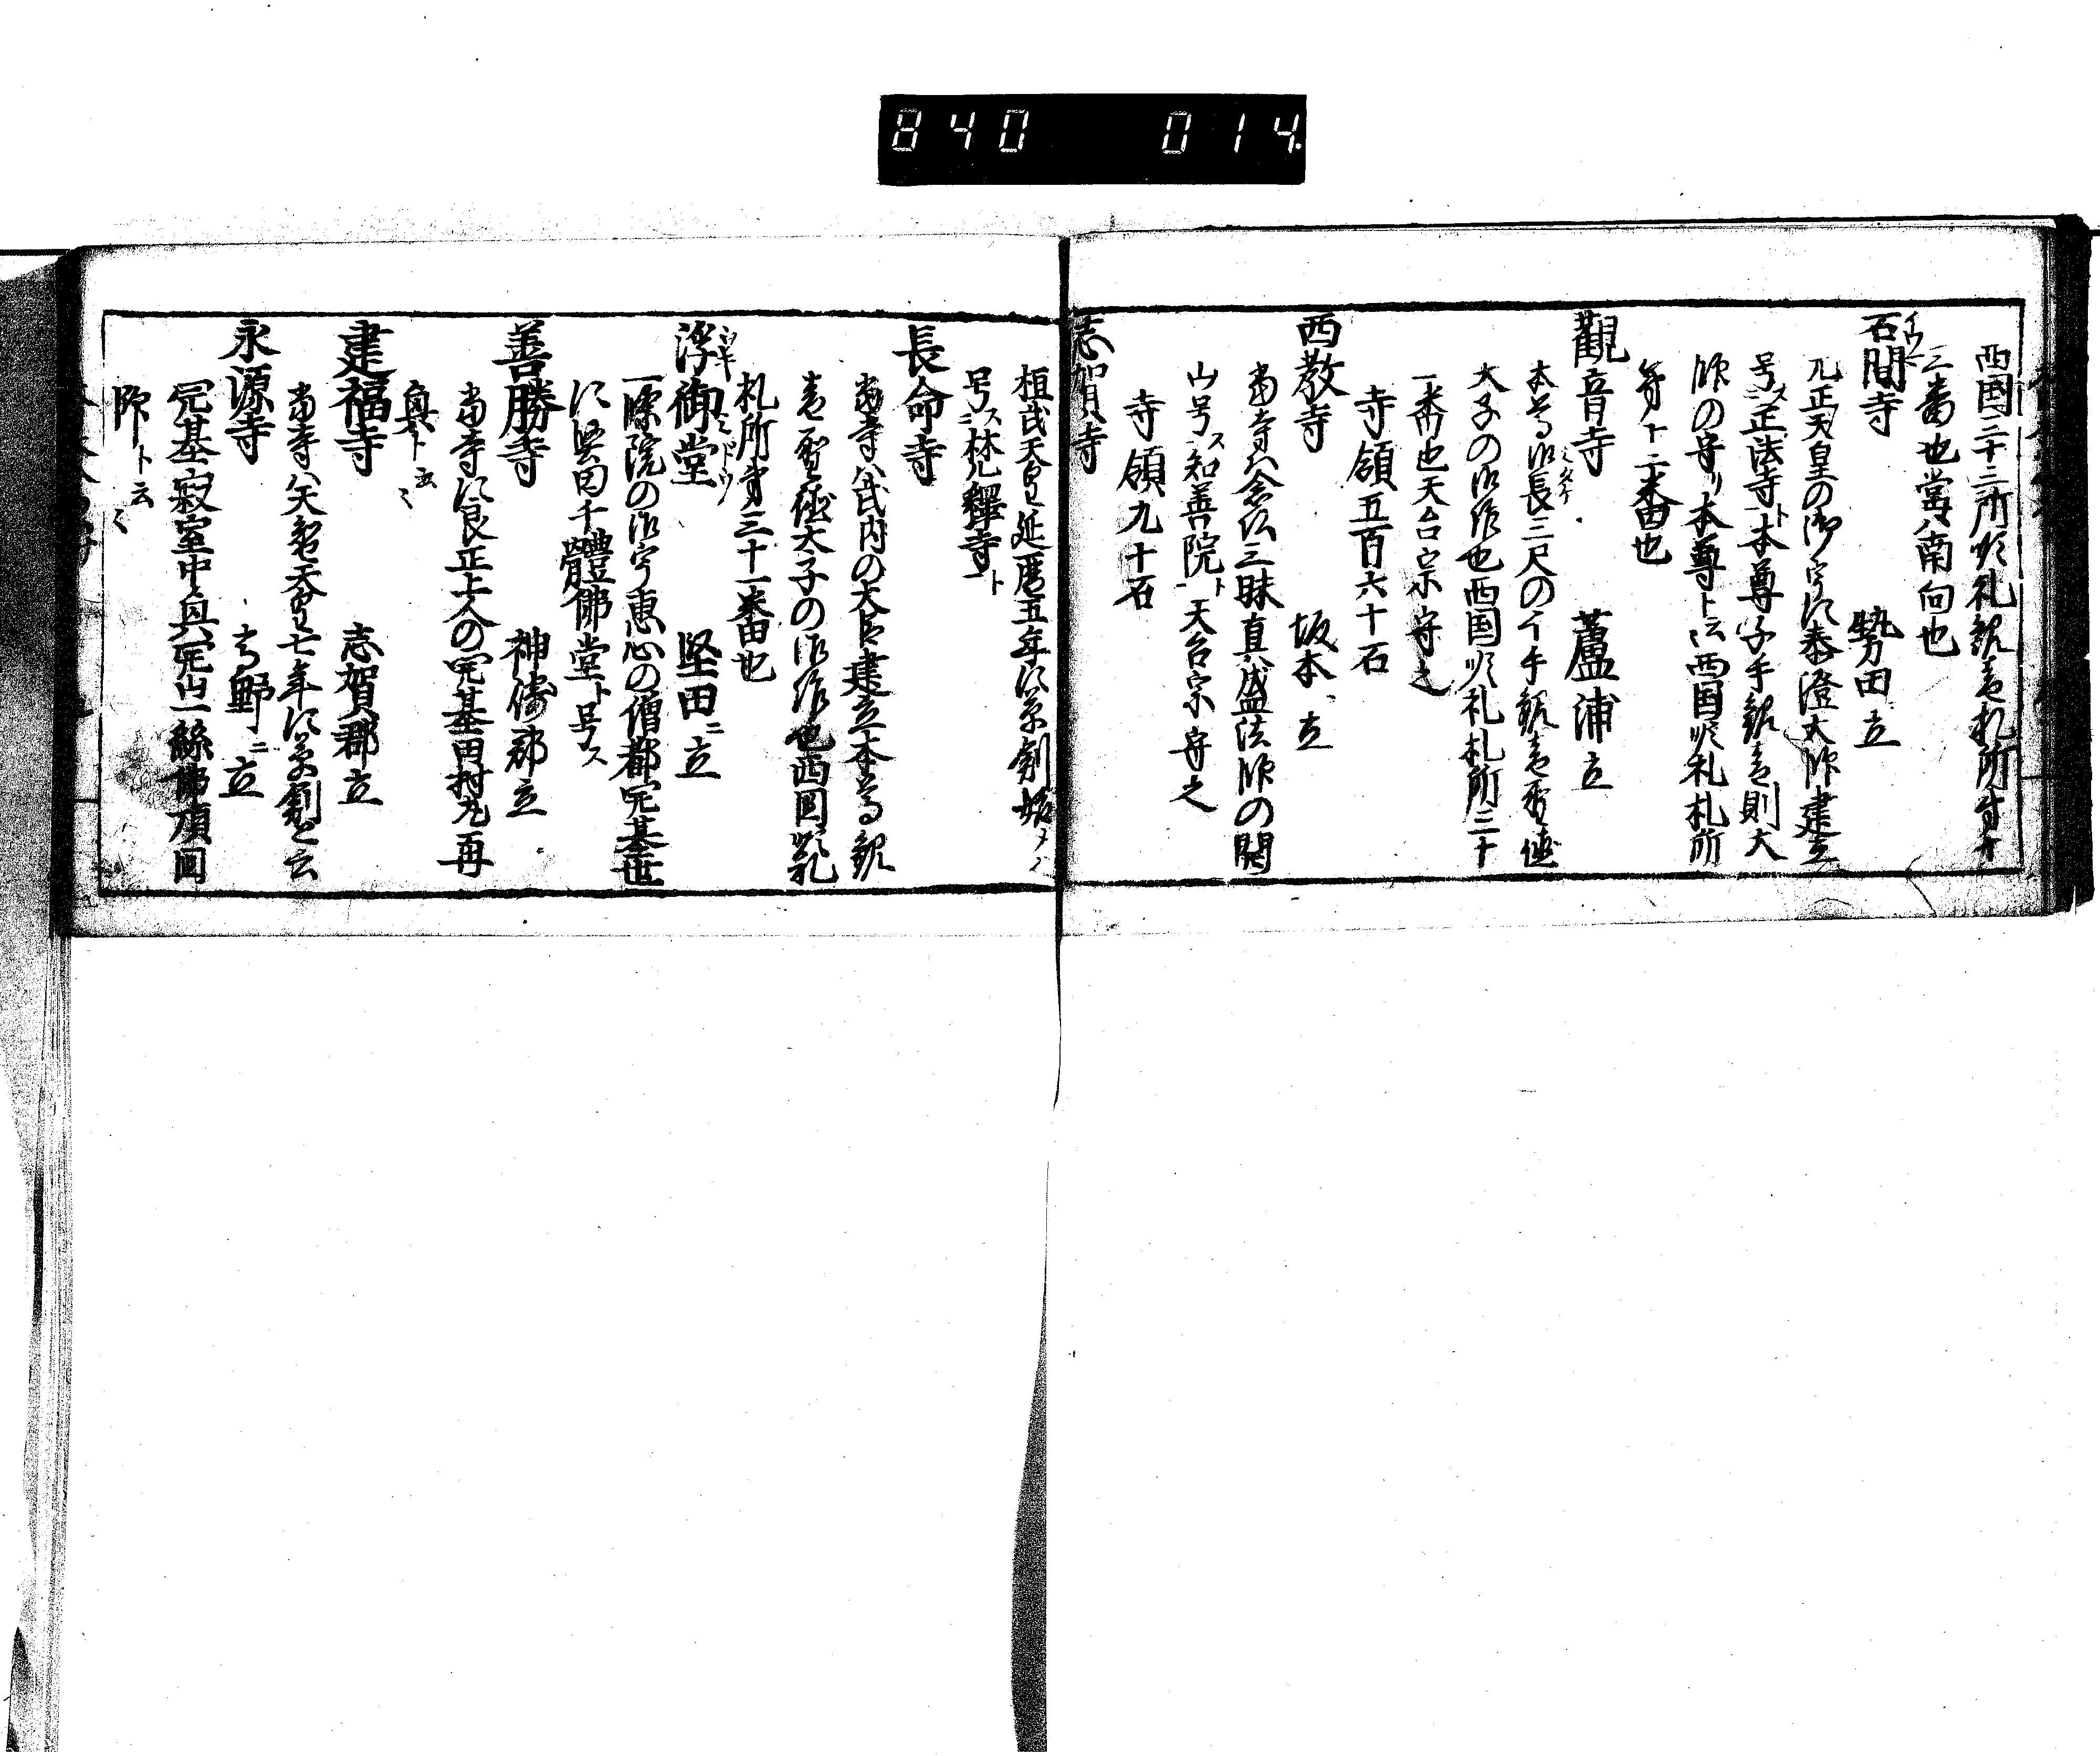 840 014
西国三十三所順礼観音札所第十
三番也堂ハ南向也
石間寺 勢田立
元正天皇の御宇に泰澄大師建立
号ス正法寺ト本尊千手観音則大
師の守リ本尊ト云西国順礼札所
第十二番也
觀音寺 蘆浦立
本尊御長三尺の千手観音聖徳
太子の御作也西国順礼札所三十
一番也天台宗守之
寺領五百六十石
西教寺 坂本立
當寺ハ念仏三昧真盛法師の開
山号ス知善院ト天台宗守之
寺領九十石
志賀寺
桓武天皇延暦五年に草創始メ
号ス梵釋寺ト
長命寺
當寺ハ武内の大臣建立本尊観
音聖徳太子の御作也西国順礼
札所第三十一番也
浮御堂 堅田ニ立
一條院の御宇恵心の僧都開基世
に異曰千體佛堂ト号ス
善勝寺 神崎郡立
當寺に良正上人の開基田村丸再
興ト云々
建福寺 志賀郡立
當寺ハ天智天皇七年に草創と云
永源寺 高野ニ立
開基寂室中興開山一絲佛頂国
師ト云々